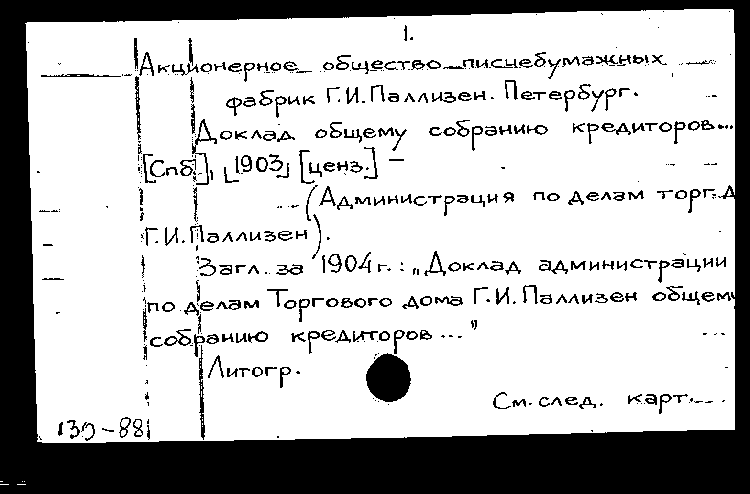 1.
Акционерное общество писчебумажных
фабрик Г.И.Паллизен. Петербург.
Доклад общему собранию кредиторов...
[Спб], [1903] [ценз.] –
(Администрация по делам торг. д
Г.И.Паллизен).
Загл. за 1904 г.: „Доклад администрации
по делам Торгового дома Г.И.Паллизен общему
собранию кредиторов ..."
Литогр.
См. след. карт.